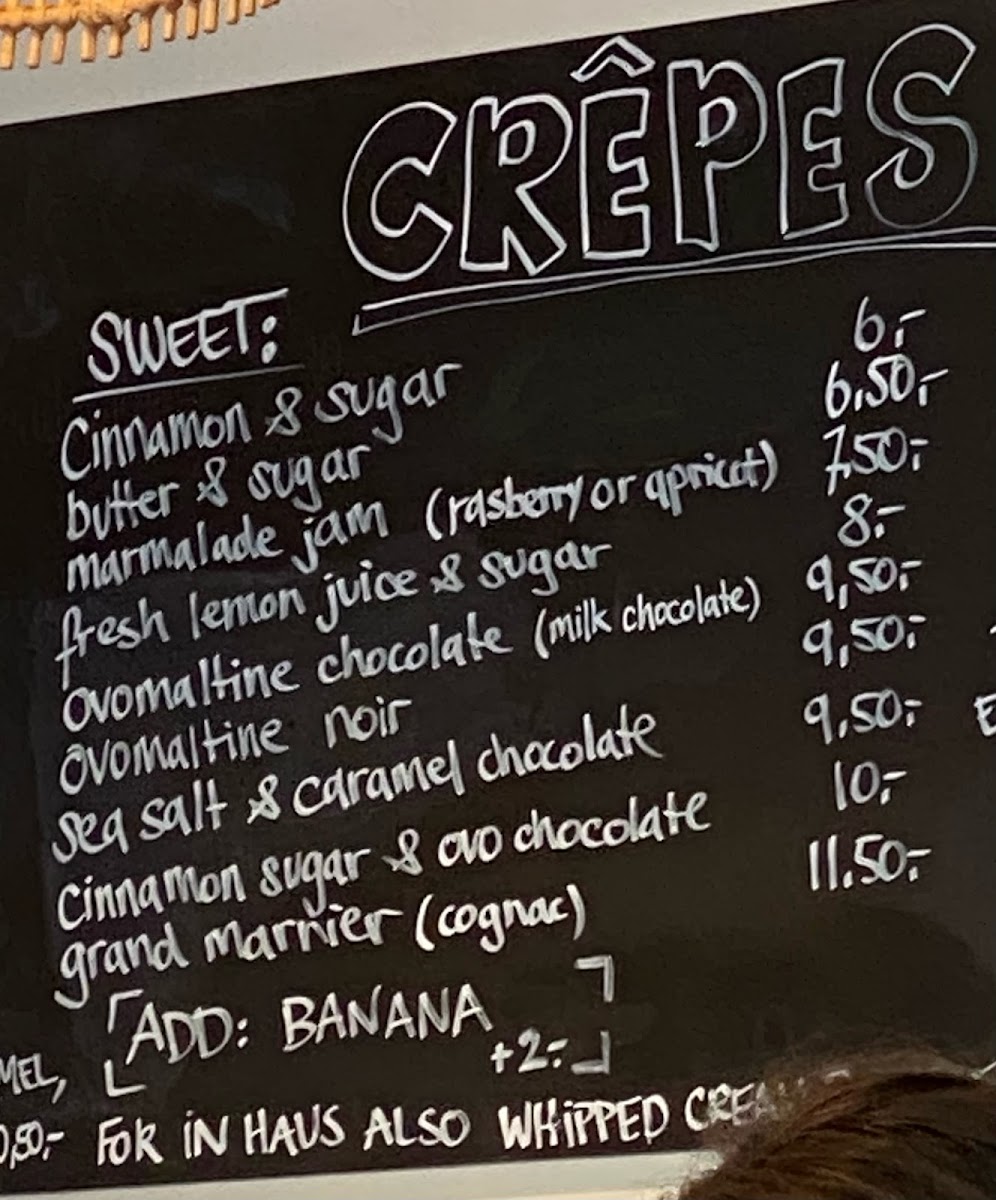 CRÊPES
SWEET:
Cinnamon & sugar 6,-
butter & sugar 6,50,-
marmalade jam (rasberry or apricot) 7,50,-
fresh lemon juice & sugar 8,-
ovomaltine chocolate (milk chocolate) 9,50,-
ovomaltine noir 9,50,-
sea salt & caramel chocolate 9,50,-
cinnamon sugar & ovo chocolate 10,-
grand marnier (cognac) 11.50,-
ADD: BANANA
+2.-
MEL,
0,50,- FOR IN HAUS ALSO WHIPPED